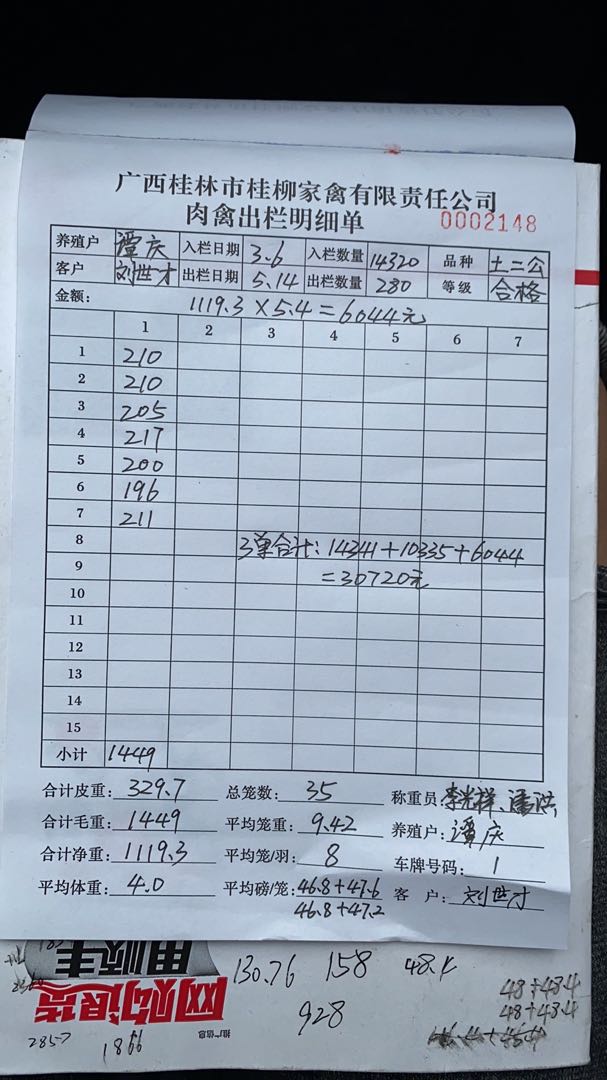 广西桂林市桂柳家禽有限责任公司
肉禽出栏明细单 0002148
养殖户 谭庆 入栏日期 3.6 入栏数量 14320 品种 土二公
客户 刘世才 出栏日期 5.14 出栏数量 280 等级 合格
金额: 1119.3×5.4=6044元
1 2 3 4 5 6 7
1 210
2 210
3 205
4 217
5 200
6 196
7 211
8 3单合计:14341+10335+6044
9 =30720元
10
11
12
13
14
15
小计 1449
合计皮重: 329.7 总笼数: 35 称重员 李光祥、潘洪
合计毛重: 1449 平均笼重: 9.42 养殖户: 谭庆
合计净重: 1119.3 平均笼/羽: 8 车牌号码: 1
平均体重: 4.0 平均磅/笼: 46.8+47.6 客户: 刘世才
46.8+47.2
130.76 158 48.4 48+48.4
928 48+48.4
网购退货
用顺丰
推广信息
2857 1866